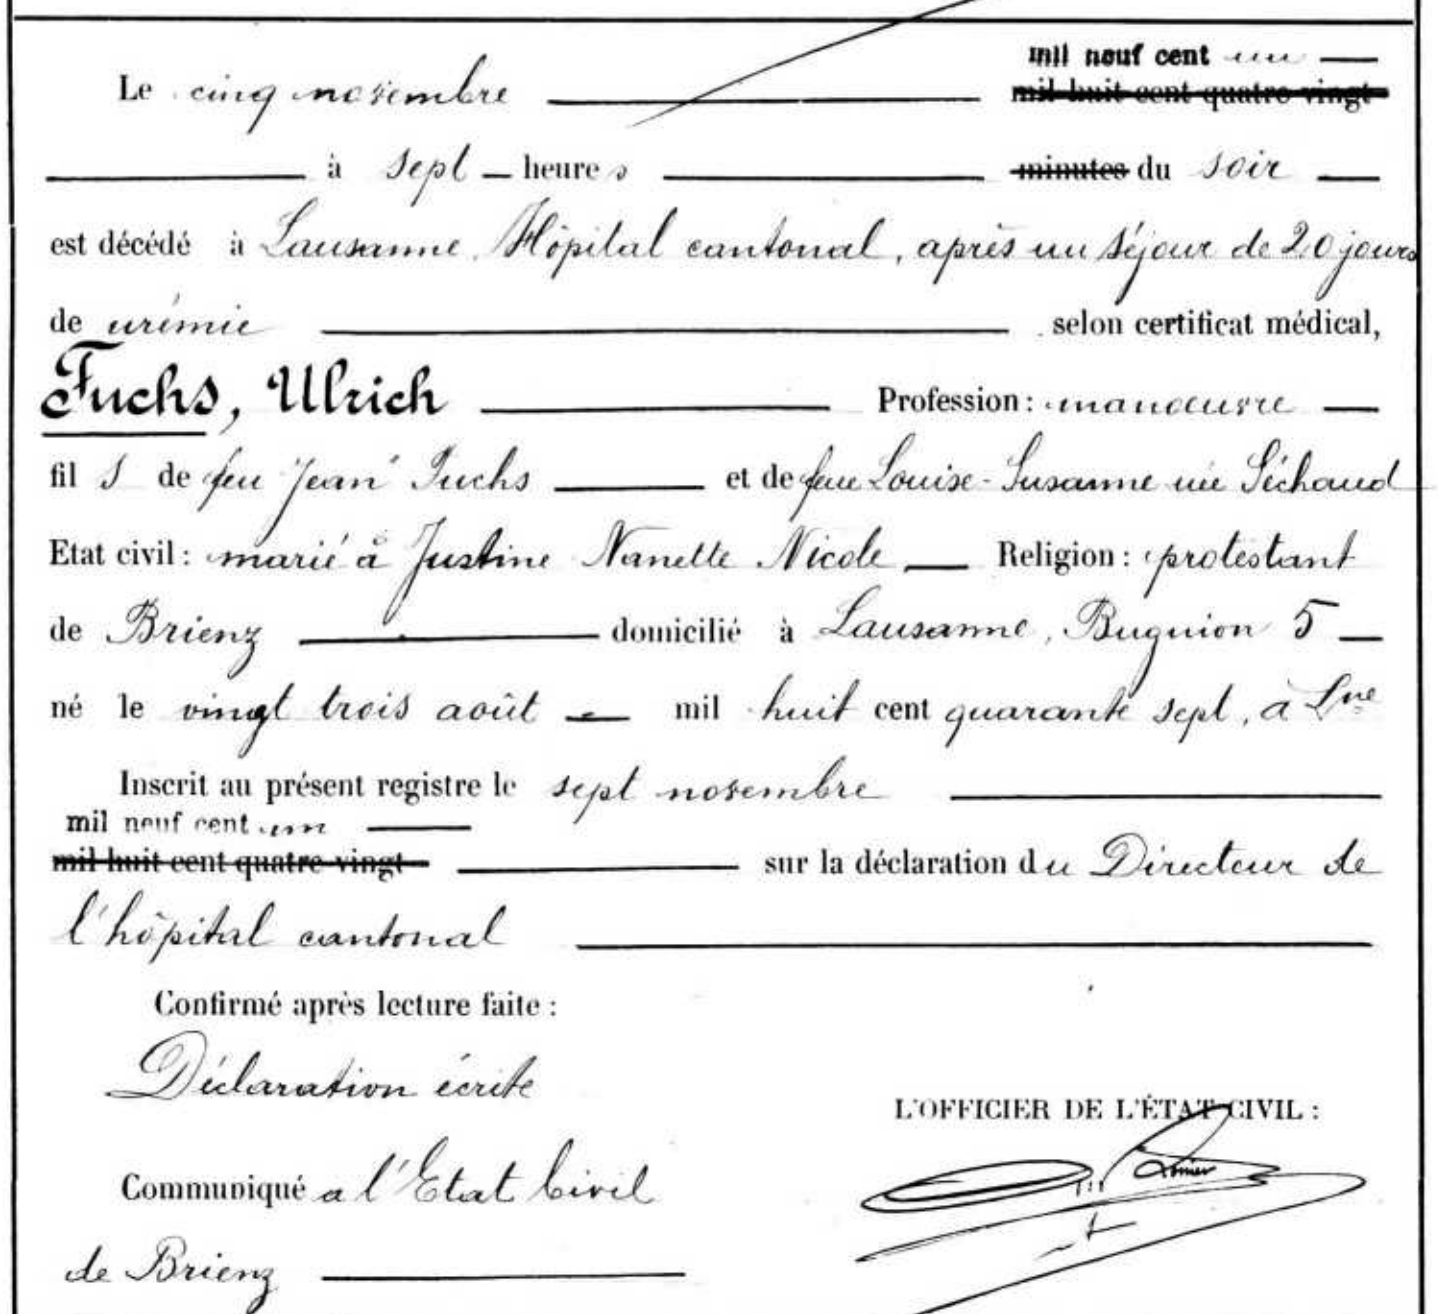 mil neuf cent un
Le cinq novembre mil huit cent quatre-vingt
à sept heures minutes du soir
est décédé à Lausanne, Hôpital cantonal, après un séjour de 20 jours
de urémie selon certificat médical,
Fuchs, Ulrich Profession : manœuvre
fils de feu "Jean" Fuchs et de feue Louise-Susanne née Séchaud
Etat civil : marié à Justine Nanette Nicole Religion : protestant
de Brienz domicilié à Lausanne, Bugnion 5
né le vingt trois août mil huit cent quarante sept, à Lne
Inscrit au présent registre le sept novembre
mil neuf cent un
mil huit cent quatre-vingt sur la déclaration du Directeur de
l'hôpital cantonal
Confirmé après lecture faite :
Déclaration écrite
L'OFFICIER DE L'ÉTAT CIVIL :
Communiqué a l'Etat Civil
de Brienz